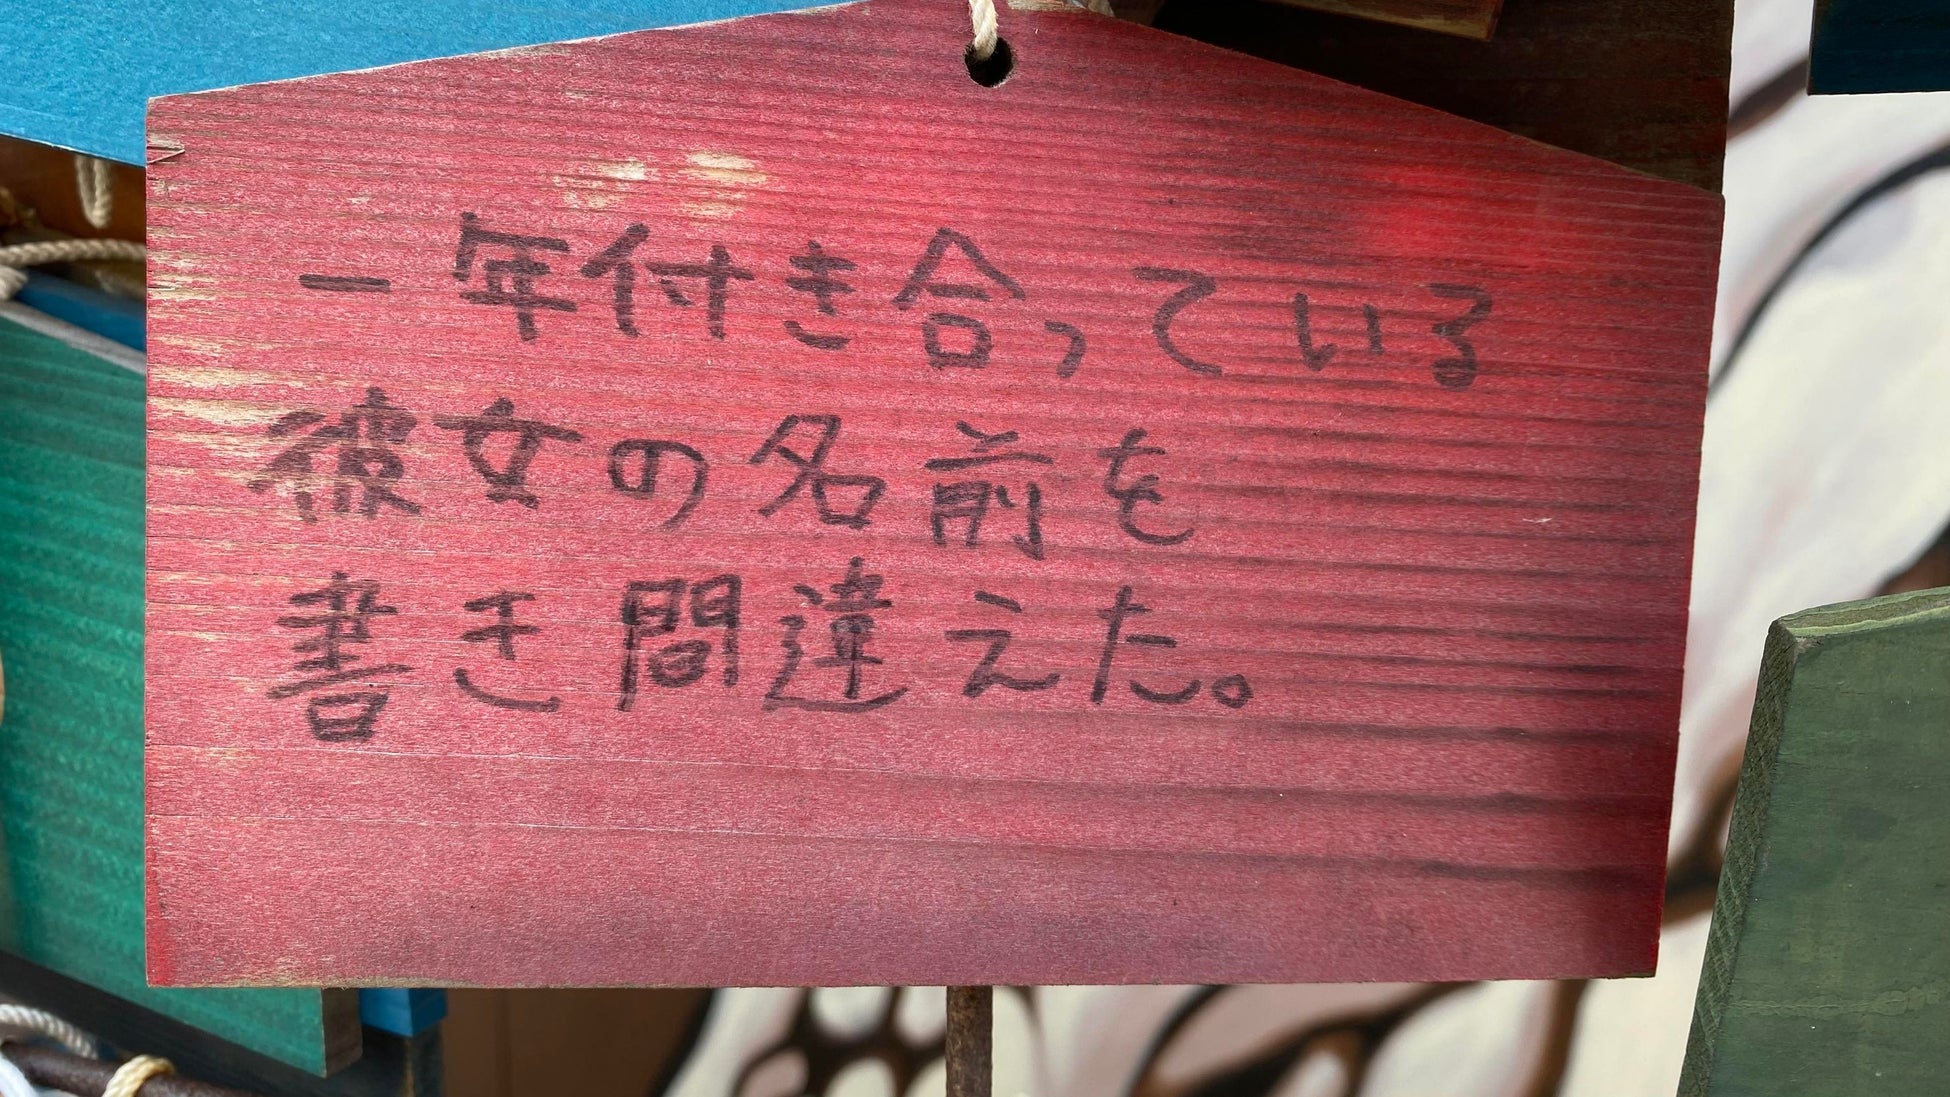 一年付き合っている
彼女の名前を
書き間違えた。